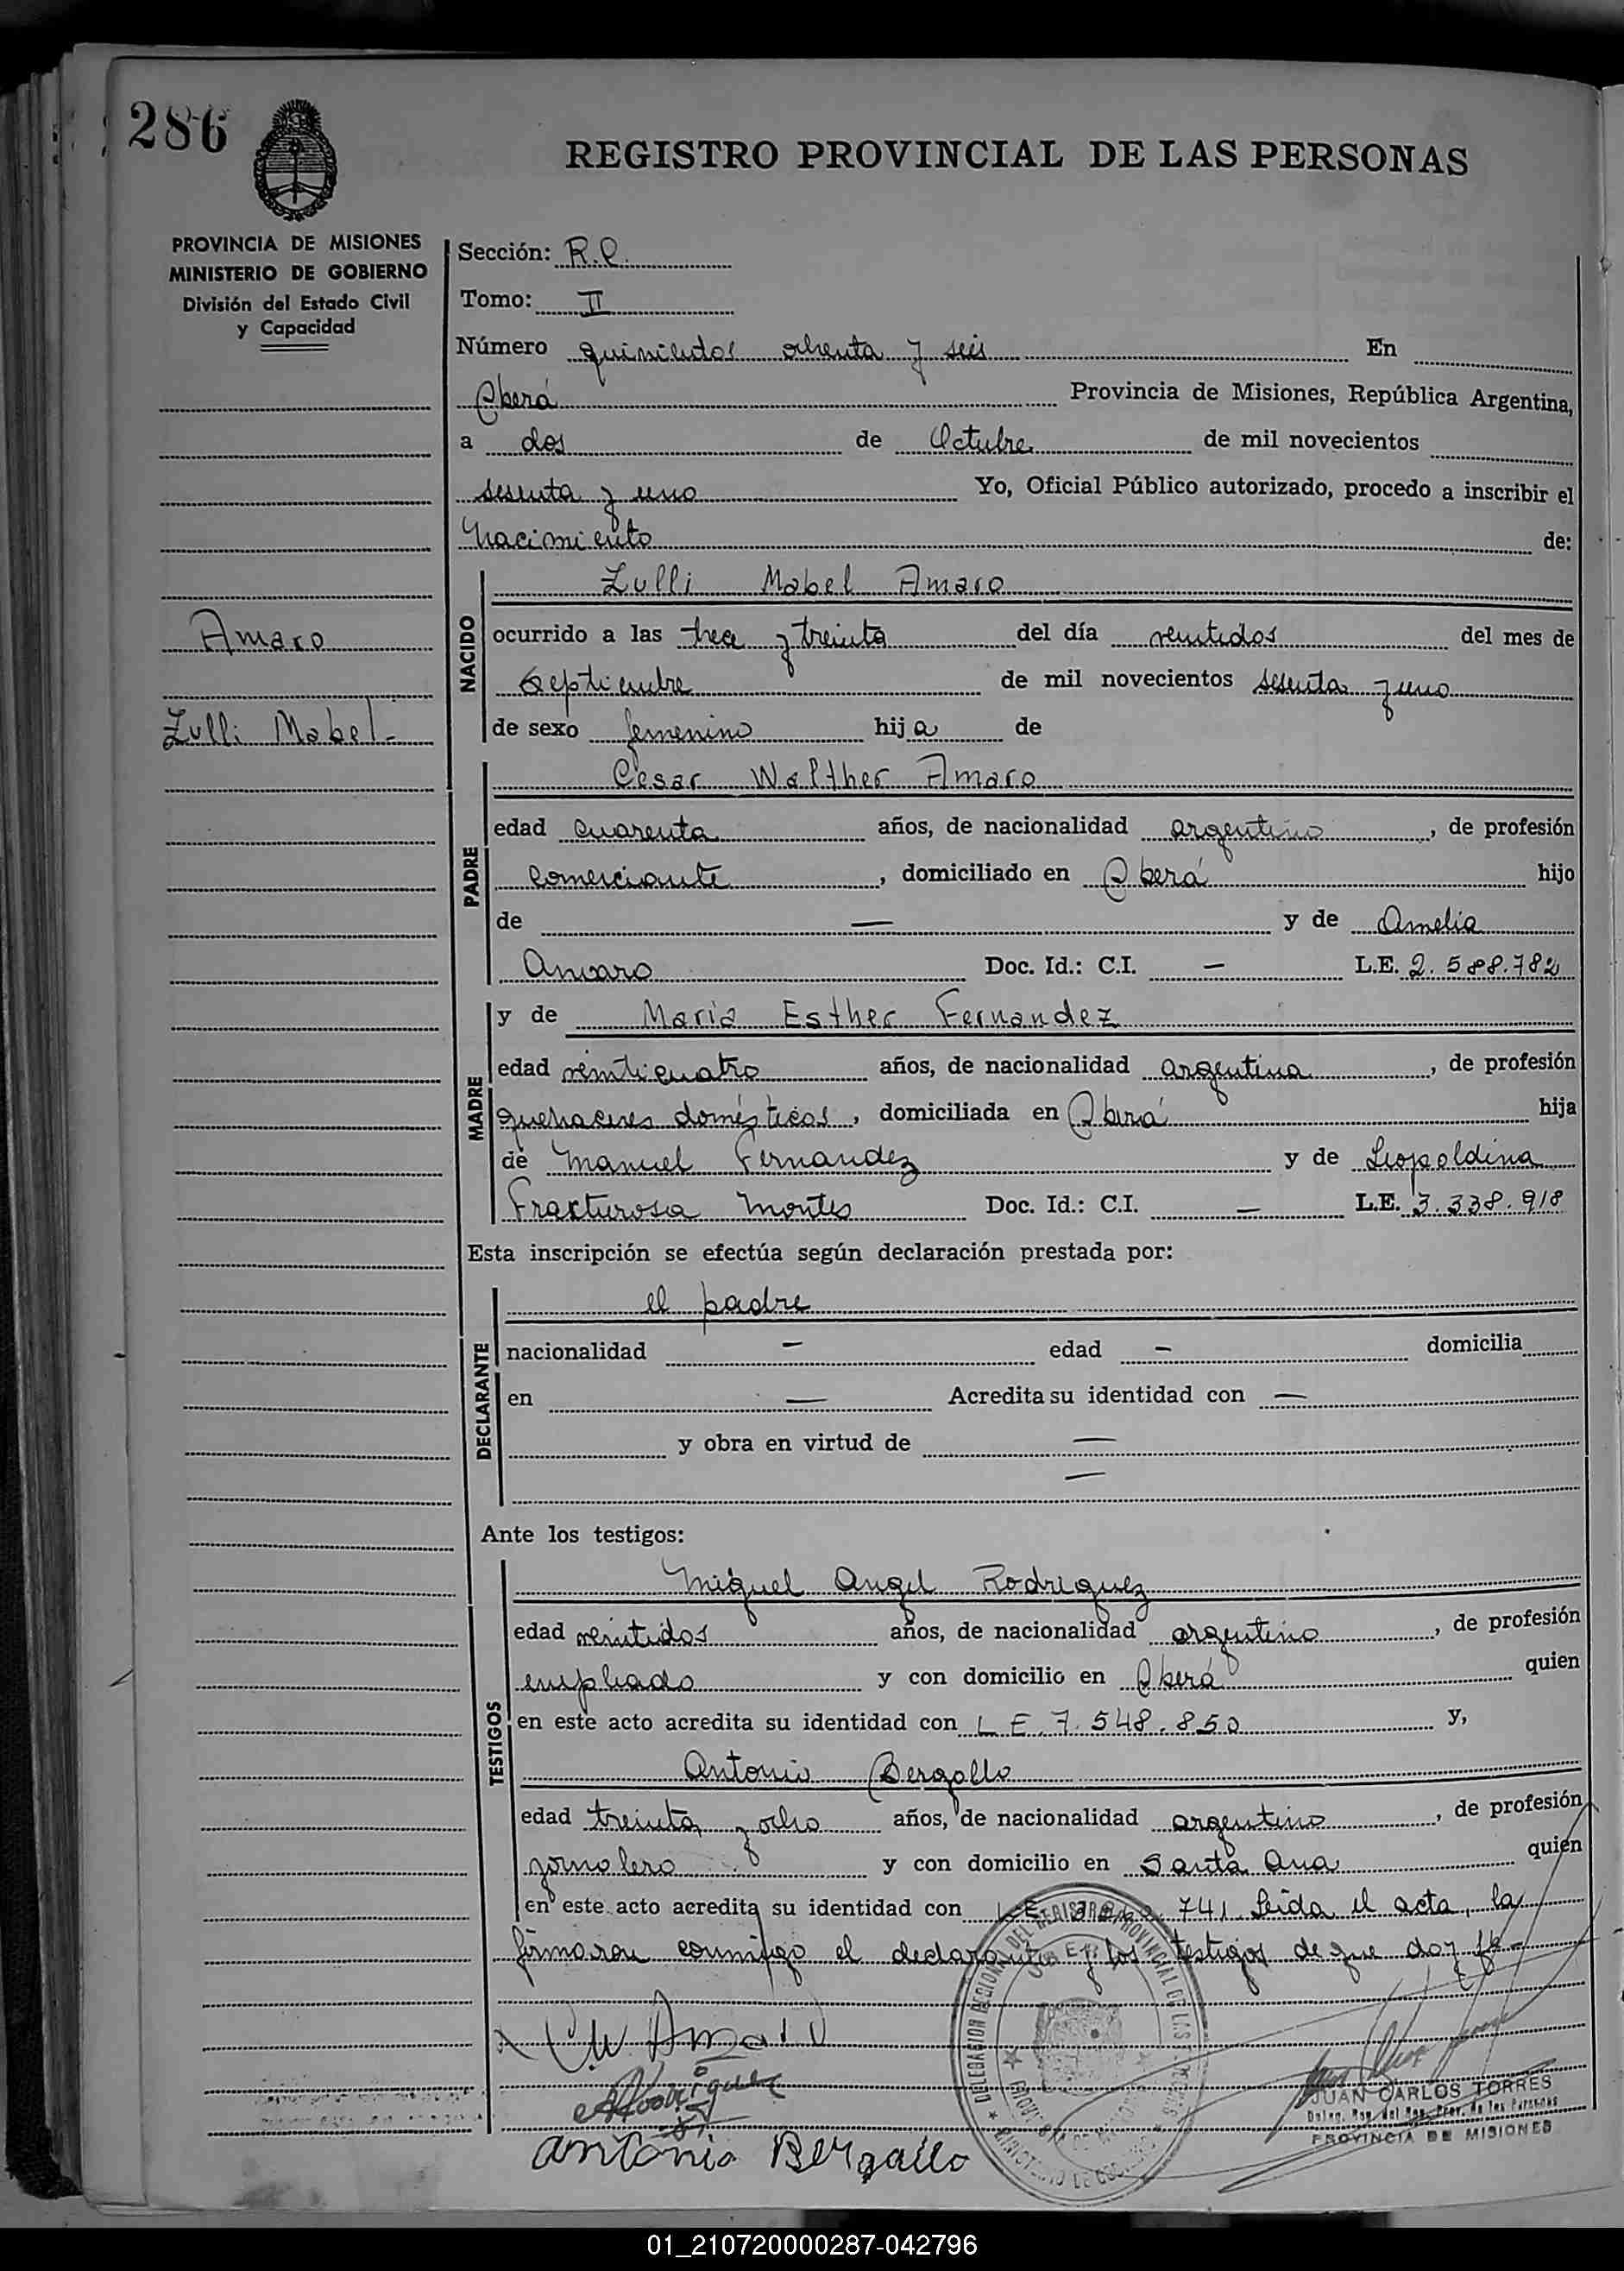 286
REGISTRO PROVINCIAL DE LAS PERSONAS
PROVINCIA DE MISIONES
MINISTERIO DE GOBIERNO
División del Estado Civil
y Capacidad
Amaro
Zulli Mabel-
Sección: R.P.
Tomo: II
Número quinientos ochenta y seis En
Oberá Provincia de Misiones, República Argentina,
a dos de Octubre de mil novecientos
sesenta y uno Yo, Oficial Público autorizado, procedo a inscribir el
Nacimiento de:
NACIDO
Zulli Mabel Amaro
ocurrido a las trece y treinta del día veintidos del mes de
Septiembre de mil novecientos sesenta y uno
de sexo femenino hija de
PADRE
Cesar Walther Amaro
edad cuarenta años, de nacionalidad argentino, de profesión
comerciante, domiciliado en Oberá hijo
de — y de Amelia
Amaro Doc. Id.: C.I. — L.E. 2.588.782
MADRE
y de Maria Esther Fernandez
edad veinticuatro años, de nacionalidad argentina, de profesión
quehaceres domésticos, domiciliada en Oberá hija
de Manuel Fernandez y de Leopoldina
Fructurosa Montes Doc. Id.: C.I. — L.E. 3.338.918
Esta inscripción se efectúa según declaración prestada por:
DECLARANTE
el padre
nacionalidad — edad — domicilia
en — Acredita su identidad con —
y obra en virtud de —
—
Ante los testigos:
TESTIGOS
Miguel Angel Rodriguez
edad veintidos años, de nacionalidad argentino, de profesión
empleado y con domicilio en Oberá quien
en este acto acredita su identidad con L.E. 7.548.850 y,
Antonio Bergallo
edad treinta y ocho años, de nacionalidad argentino, de profesión
jornalero y con domicilio en Santa Ana quien
en este acto acredita su identidad con L.E. 741 Leida el acta, la
firmaron conmigo el declarante y los testigos de que doy fe-
C W Amaro
Rodriguez
antonio Bergallo
DELEGACION REGIONAL DEL REGISTRO PROVINCIAL DE LAS PERSONAS
JUAN CARLOS TORRES
Deleg. Reg. del Reg. Prov. de las Personas
PROVINCIA DE MISIONES
01_210720000287-042796